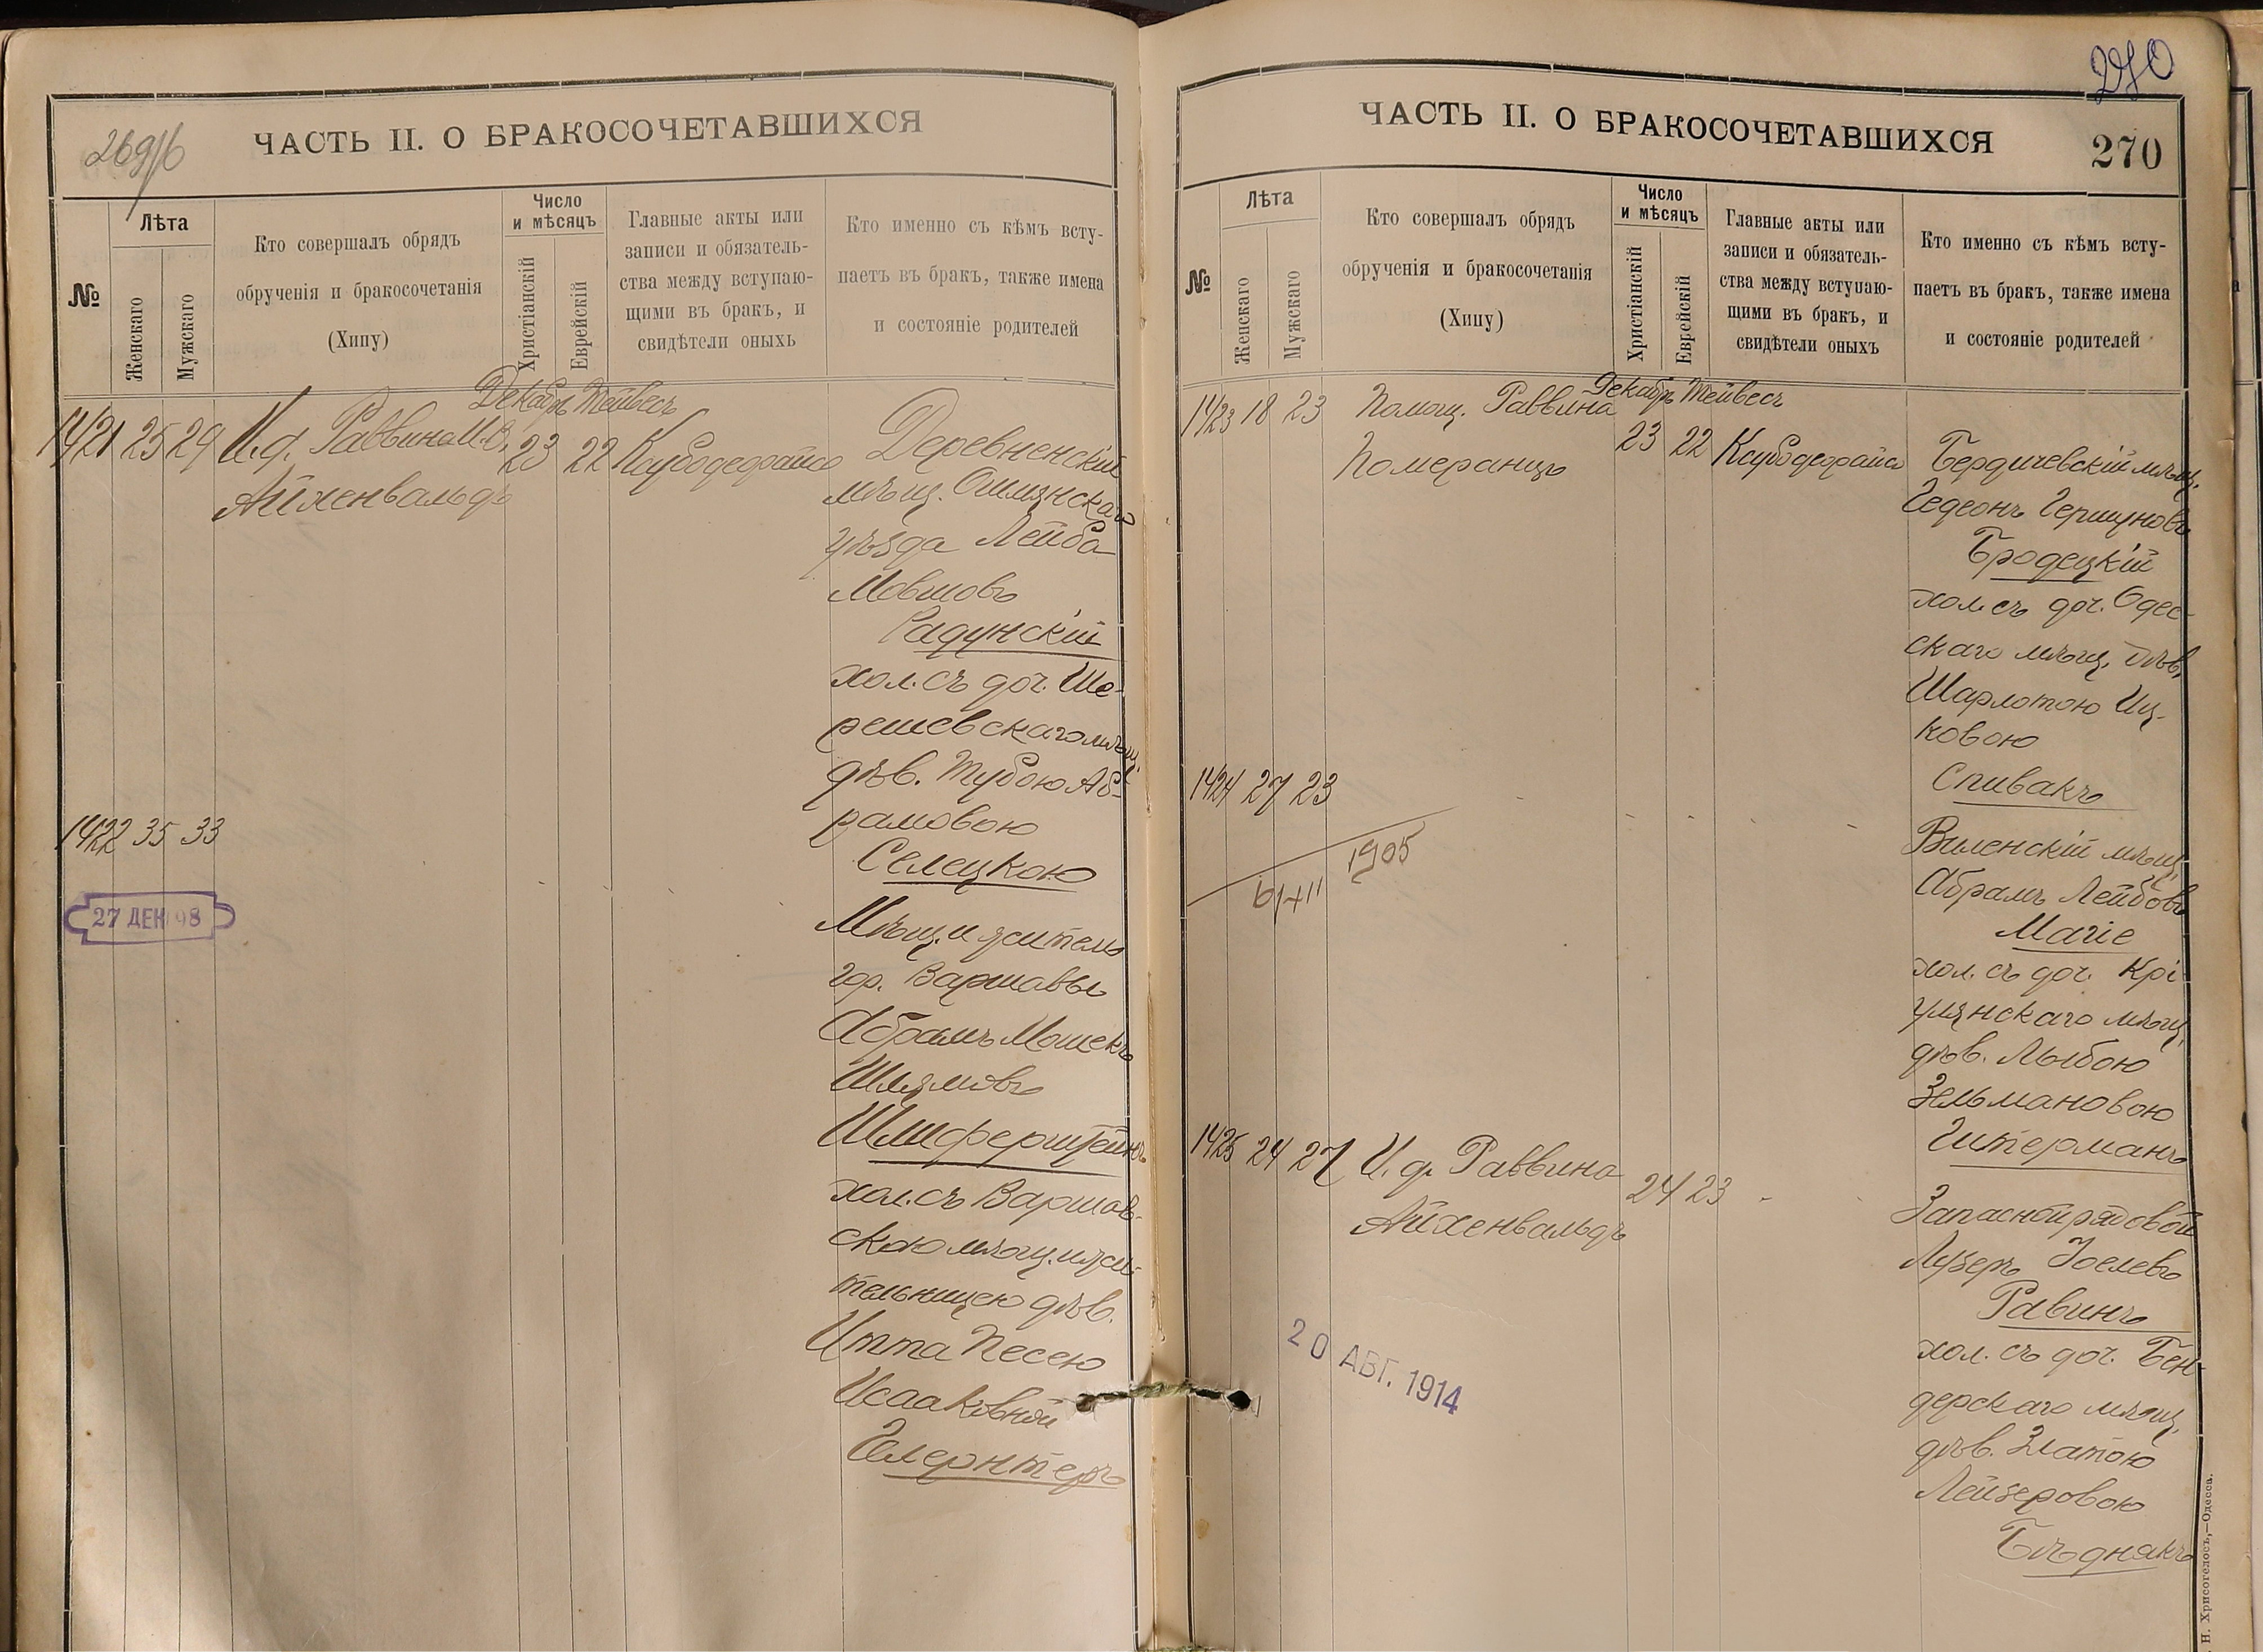 269/б
ЧАСТЬ II. О БРАКОСОЧЕТАВШИХСЯ
№
Лѣта
Женскаго
Мужскаго
Кто совершалъ обрядъ
обрученія и бракосочетанія
(Хипу)
Число
и мѣсяцъ
Христіанскій
Еврейскій
Главные акты или
записи и обязатель-
ства между вступаю-
щими въ бракъ, и
свидѣтели оныхъ
Кто именно съ кѣмъ всту-
паетъ въ бракъ, также имена
и состояніе родителей
Декабрь Тейвесъ
1421 25 29 И.д. Раввина 23 22
Айхенвальдъ
Деревненскій
мѣщ. Ошмянскаго
уѣзда Лейба
Мовшовъ
Радунскій
хол. съ доч. Ше-
решевскаго мѣщ.
дѣв. Тубою Аб-
рамовою
Селецкою
1422 35 33
27 ДЕК 98
Мѣщ. и житель
гор. Варшавы
Абрамъ Мошекъ
Шлямовъ
Шлиферштейнъ
хол. съ Варшав-
скою мѣщ. и жи-
тельницею дѣв.
Итта Песею
Исааковной
Гелернтеръ
270
ЧАСТЬ II. О БРАКОСОЧЕТАВШИХСЯ
270
№
Лѣта
Женскаго
Мужскаго
Кто совершалъ обрядъ
обрученія и бракосочетанія
(Хипу)
Число
и мѣсяцъ
Христіанскій
Еврейскій
Главные акты или
записи и обязатель-
ства между вступаю-
щими въ бракъ, и
свидѣтели оныхъ
Кто именно съ кѣмъ всту-
паетъ въ бракъ, также имена
и состояніе родителей
Декабрь Тейвесъ
1423 18 23 Помощ. Раввина 23 22
Померанцъ
Бердичевскій мѣщ.
Гедеонъ Гершуновъ
Бродецкій
хол. съ доч. Одес-
скаго мѣщ. дѣв.
Шарлотою Иц-
ковою
Спивакъ
1424 27 23
6/XII 1905
Виленскій мѣщ.
Абрамъ Лейбовъ
Магіе
хол. съ доч. Крі-
улянскаго мѣщ.
дѣв. Лыбою
Зельмановою
Гитерманъ
1425 24 27 И.д. Раввина 24 23
Айхенвальдъ
20 АВГ. 1914
Запасной рядовой
Лузеръ Іоелевъ
Равинъ
хол. съ доч. Бен-
дерскаго мѣщ.
дѣв. Златою
Лейзеровою
Бѣднякъ
Н. Хрисогелосъ,—Одесса.